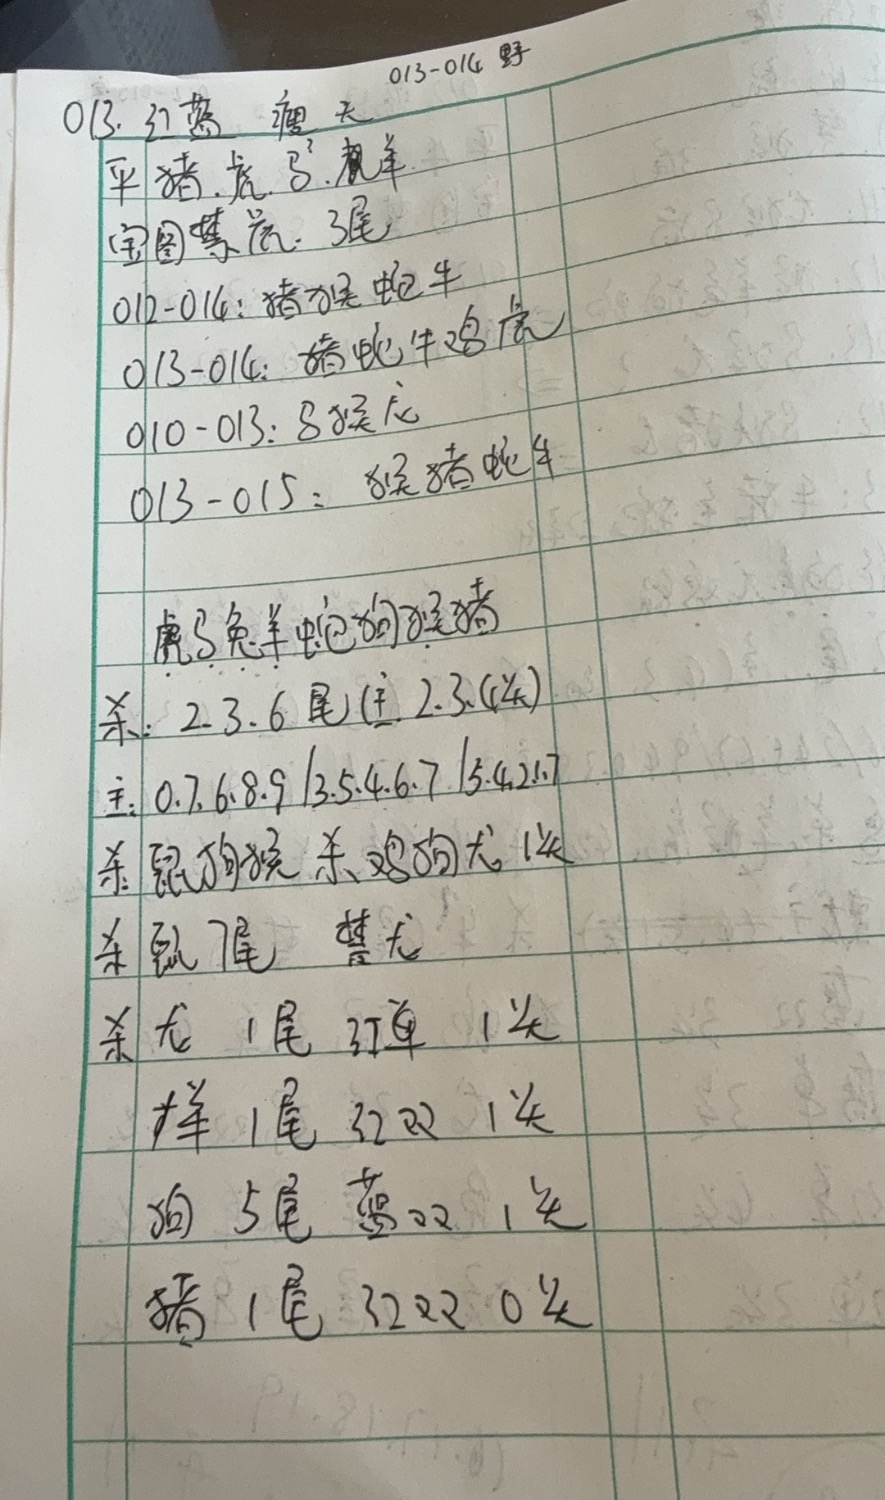 013-014 野
013. 红蓝 瘦 天
平 猪.虎.马.羊
宝图禁鼠. 3尾
012-014: 猪猴蛇牛
013-014: 猪蛇牛鸡虎
010-013: 马猴龙
013-015: 猴猪蛇牛
虎马兔羊蛇狗猴猪
杀: 2.3.6尾(主 2.3.4头)
主: 0.7.6.8.9/3.5.4.6.7/5.4.2.1.7
杀: 鼠狗猴 杀、鸡狗龙 1头
杀 鼠 7尾 禁龙
杀 龙 1尾 红单 1头
羊 1尾 红双 1头
狗 5尾 蓝双 1头
猪 1尾 红双 0头